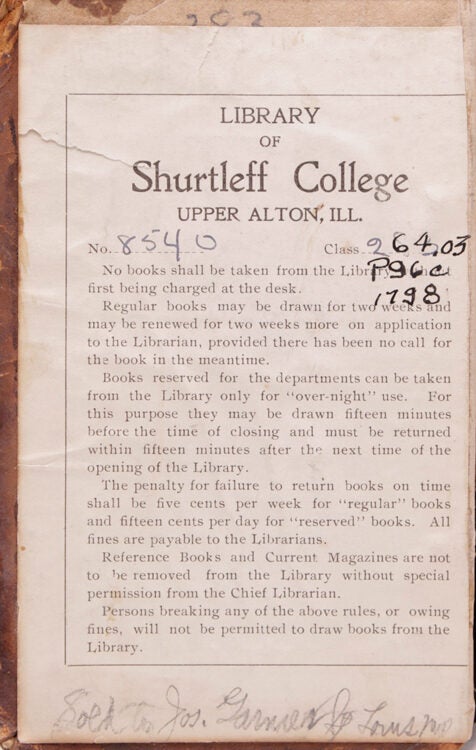 202
LIBRARY
OF
Shurtleff College
UPPER ALTON, ILL.
No. 8540 Class 264.03
P96c
1798
No books shall be taken from the Library without
first being charged at the desk.
Regular books may be drawn for two weeks and
may be renewed for two weeks more on application
to the Librarian, provided there has been no call for
the book in the meantime.
Books reserved for the departments can be taken
from the Library only for “over-night” use. For
this purpose they may be drawn fifteen minutes
before the time of closing and must be returned
within fifteen minutes after the next time of the
opening of the Library.
The penalty for failure to return books on time
shall be five cents per week for “regular” books
and fifteen cents per day for “reserved” books. All
fines are payable to the Librarians.
Reference Books and Current Magazines are not
to be removed from the Library without special
permission from the Chief Librarian.
Persons breaking any of the above rules, or owing
fines, will not be permitted to draw books from the
Library.
Sold to Jos. Garnier St Louis Mo